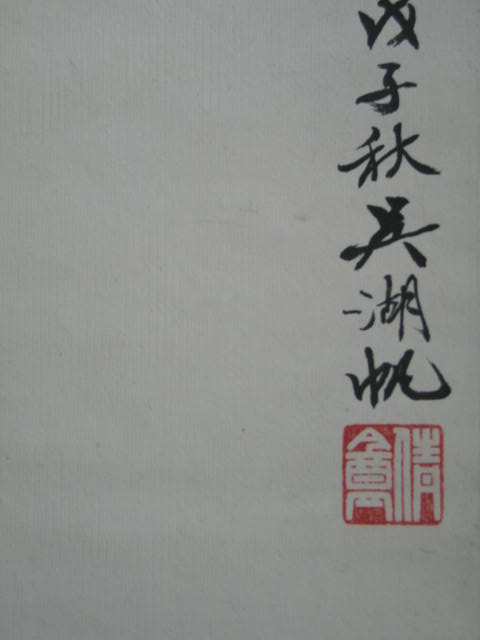 戊子秋吴湖帆
倩盦